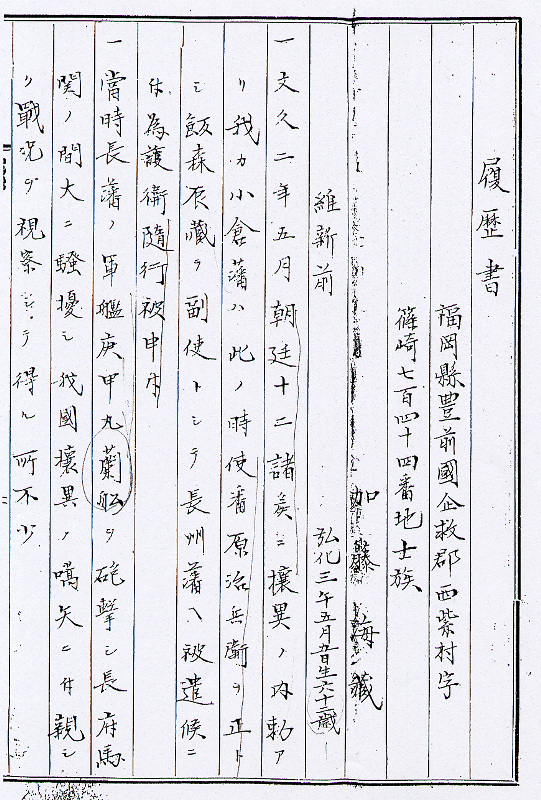 履歴書
福岡縣豊前國企救郡西紫村字
篠崎七百四十四番地士族
加藤海蔵
弘化三年五月五日生六十三歳
維新前
一文久二年五月朝廷十二諸矦ニ攘異ノ内勅ア
リ我カ小倉藩ハ此ノ時使番原治兵衛ヲ正ト
シ飯森辰藏ヲ副使トシテ長州藩ヘ被遣候ニ
付為護衛随行被申付
一當時長藩ノ軍艦庚甲丸蘭舩ヲ砲撃シ長府馬
関ノ間大ニ騒擾シ我國攘異ノ嚆矢ニ付親シ
ク戰况ヲ視察シテ得ル所不少